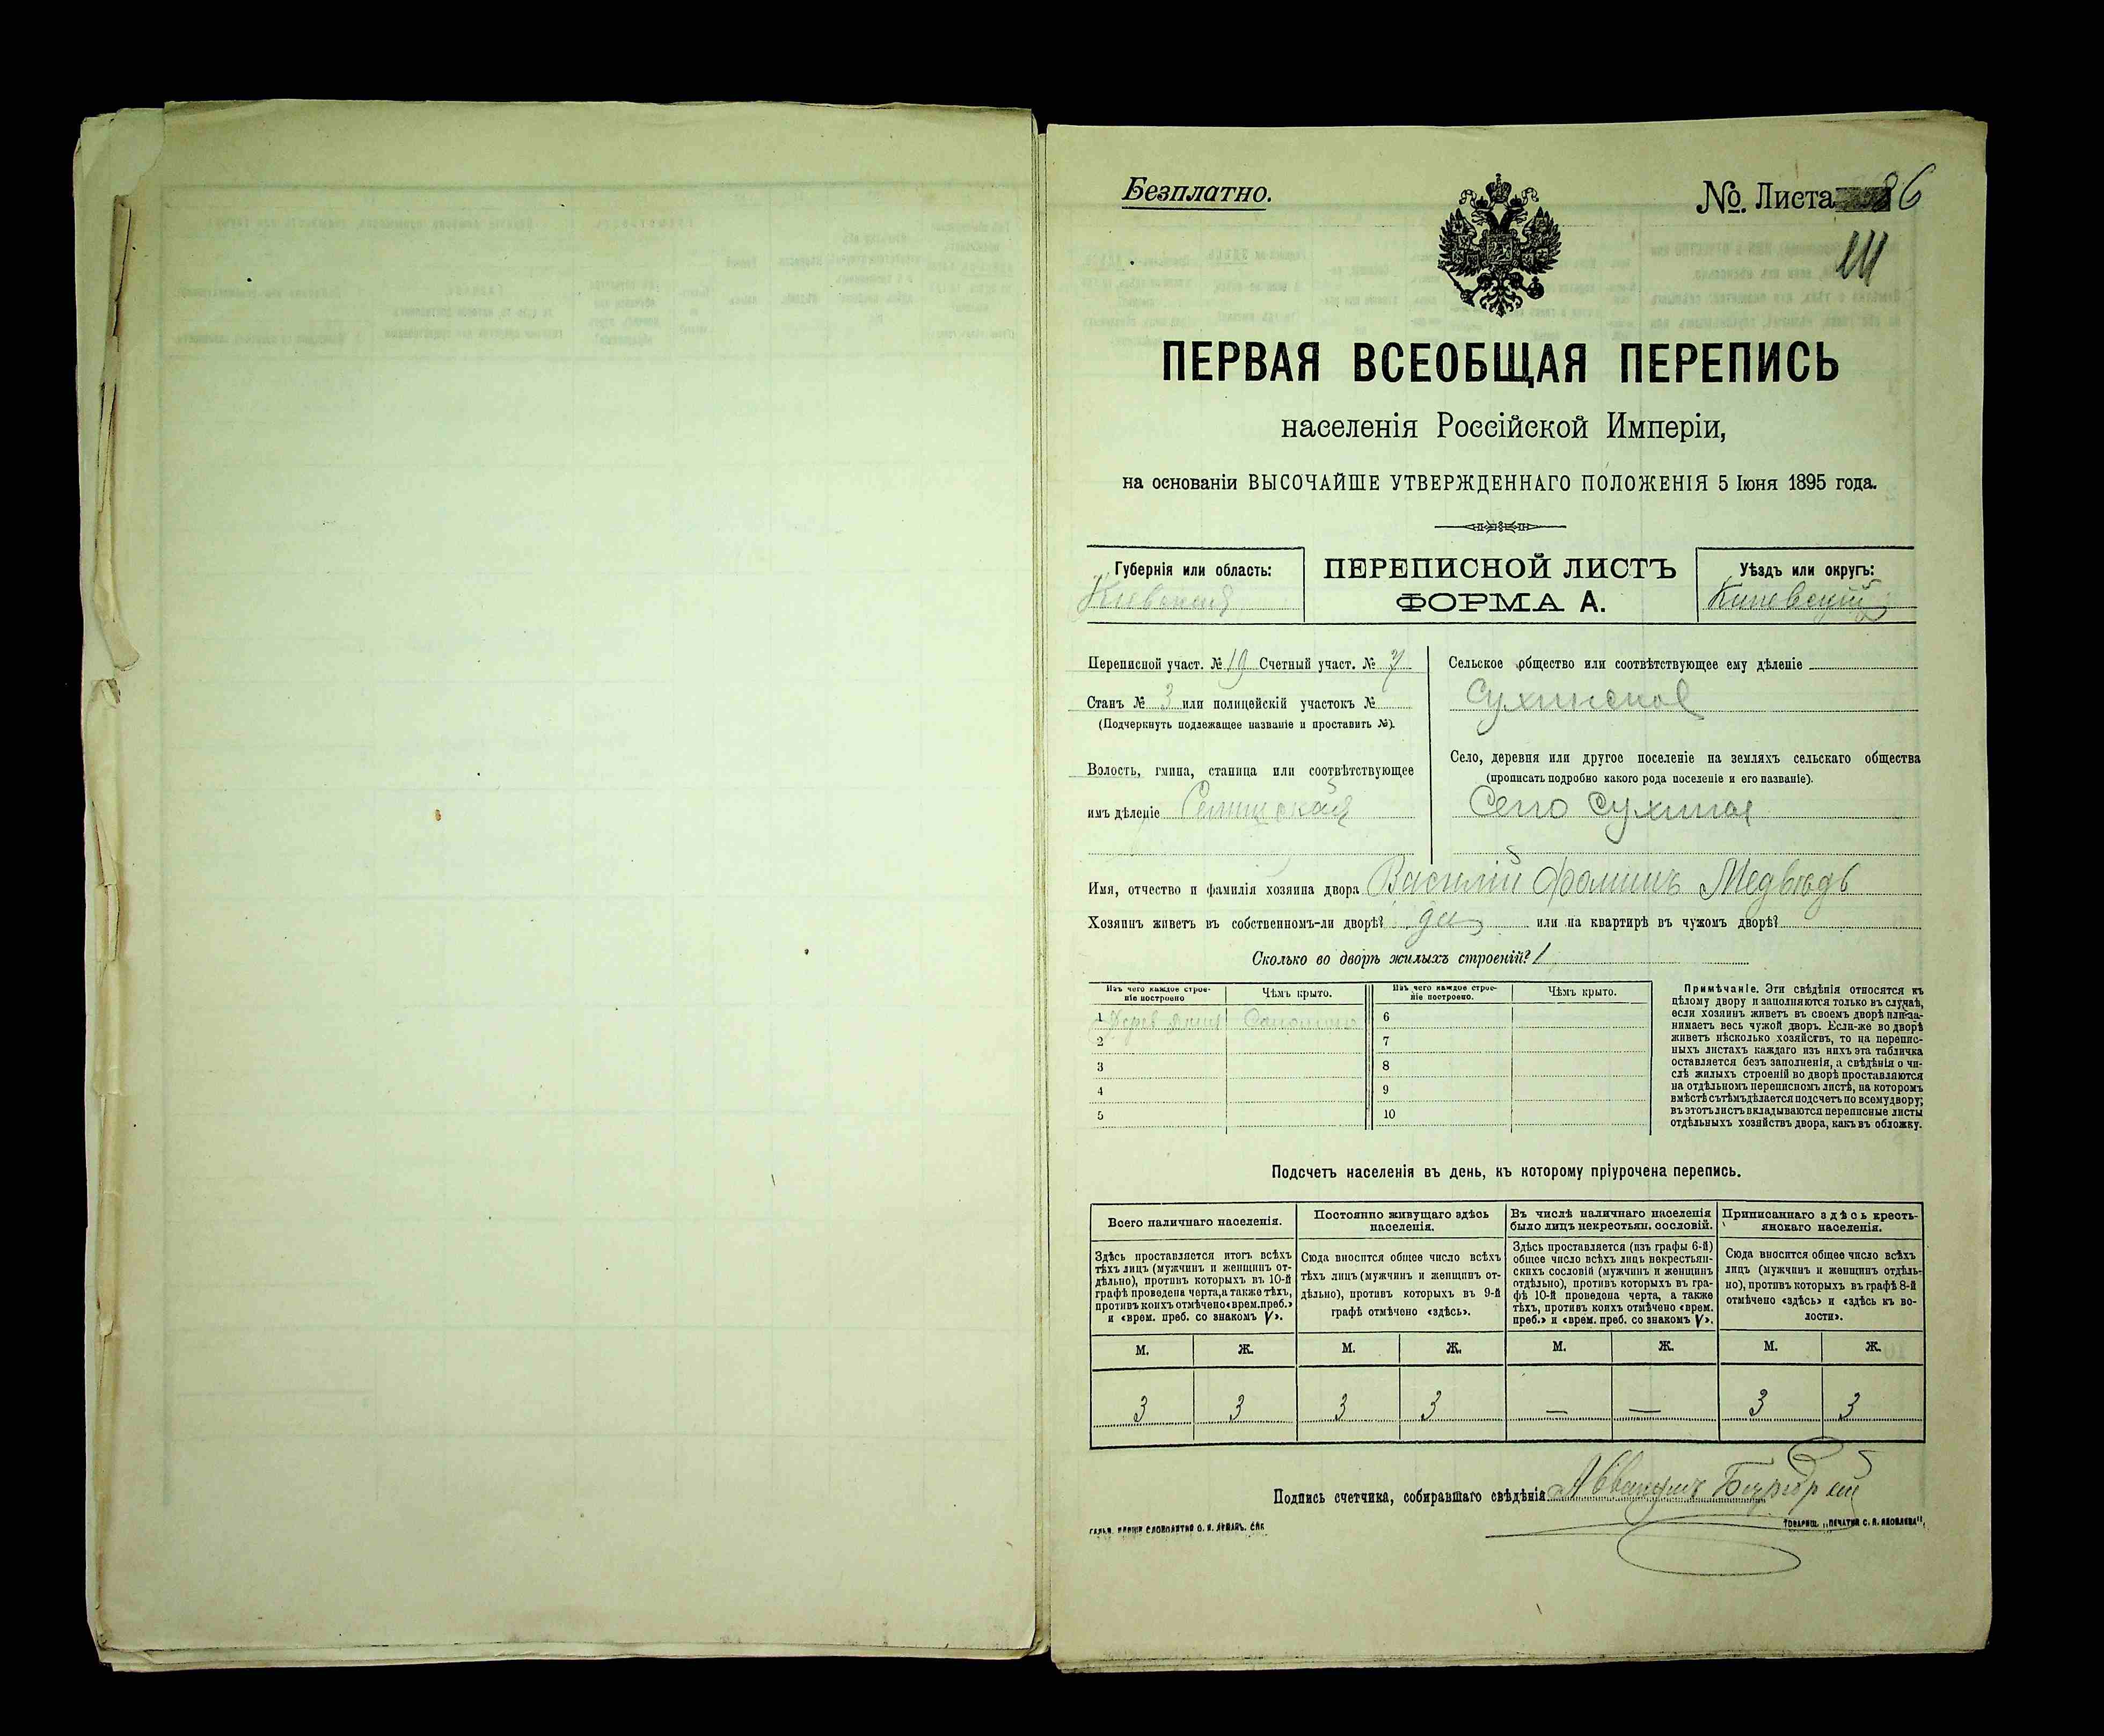 Безплатно.
№ Листа 86
111
ПЕРВАЯ ВСЕОБЩАЯ ПЕРЕПИСЬ
населенія Россійской Имперіи,
на основаніи ВЫСОЧАЙШЕ УТВЕРЖДЕННАГО ПОЛОЖЕНІЯ 5 Іюня 1895 года.
Губернія или область:
Кіевская
ПЕРЕПИСНОЙ ЛИСТЪ
ФОРМА А.
Уѣздъ или округъ:
Каневскій
Переписной участ. № 10 Счетный участ. № 7
Станъ № 3 или полицейскій участокъ №
(Подчеркнуть подлежащее названіе и проставить №).
Волость, гмина, станица или соотвѣтствующее
имъ дѣленіе
Сельское общество или соотвѣтствующее ему дѣленіе
Сухинское
Село, деревня или другое поселеніе на земляхъ сельскаго общества
(прописать подробно какого рода поселеніе и его названіе).
Село Сухиная
Имя, отчество и фамилія хозяина двора Василій Фоминъ Медвѣдь
Хозяинъ живетъ въ собственномъ-ли дворѣ? да или на квартирѣ въ чужомъ дворѣ?
Сколько во дворѣ жилыхъ строеній? 1
Изъ чего каждое строе-
ніе построено
Чѣмъ крыто.
Изъ чего каждое строе-
ніе построено.
Чѣмъ крыто.
1 Соломою 6
2 7
3 8
4 9
5 10
Примѣчаніе. Эти свѣдѣнія относятся къ
цѣлому двору и заполняются только въ случаѣ,
если хозяинъ живетъ въ своемъ дворѣ или за-
нимаетъ весь чужой дворъ. Если-же во дворѣ
живетъ нѣсколько хозяйствъ, то на перепис-
ныхъ листахъ каждаго изъ нихъ эта табличка
оставляется безъ заполненія, а свѣдѣнія о чи-
слѣ жилыхъ строеній во дворѣ проставляются
на отдѣльномъ переписномъ листѣ, на которомъ
вмѣстѣ съ тѣмъ дѣлается подсчетъ по всему двору;
въ этотъ листъ вкладываются переписные листы
отдѣльныхъ хозяйствъ двора, какъ въ обложку.
Подсчетъ населенія въ день, къ которому пріурочена перепись.
Всего наличнаго населенія.
Здѣсь проставляется итогъ всѣхъ
тѣхъ лицъ (мужчинъ и женщинъ от-
дѣльно), противъ которыхъ въ 10-й
графѣ проведена черта, а также тѣхъ,
противъ коихъ отмѣчено «врем. преб.»
и «врем. преб. со знакомъ V».
Постоянно живущаго здѣсь
населенія.
Сюда вносится общее число всѣхъ
тѣхъ лицъ (мужчинъ и женщинъ от-
дѣльно), противъ которыхъ въ 9-й
графѣ отмѣчено «здѣсь».
Въ числѣ наличнаго населенія
было лицъ некрестьян. сословій.
Здѣсь проставляется (изъ графы 6-й)
общее число всѣхъ лицъ некрестьян-
скихъ сословій (мужчинъ и женщинъ
отдѣльно), противъ которыхъ въ гра-
фѣ 10-й проведена черта, а также
тѣхъ, противъ коихъ отмѣчено «врем.
преб.» и «врем. преб. со знакомъ V».
Приписаннаго здѣсь кресть-
янскаго населенія.
Сюда вносится общее число всѣхъ
лицъ (мужчинъ и женщинъ отдѣль-
но), противъ которыхъ въ графѣ 8-й
отмѣчено «здѣсь» и «здѣсь къ во-
лости».
М. Ж. М. Ж. М. Ж. М. Ж.
3 3 3 3 — — 3 3
Подпись счетчика, собиравшаго свѣдѣнія Аввакумъ
ТОВАРИЩ. „ПЕЧАТНЯ С. П. ЯКОВЛЕВА“.